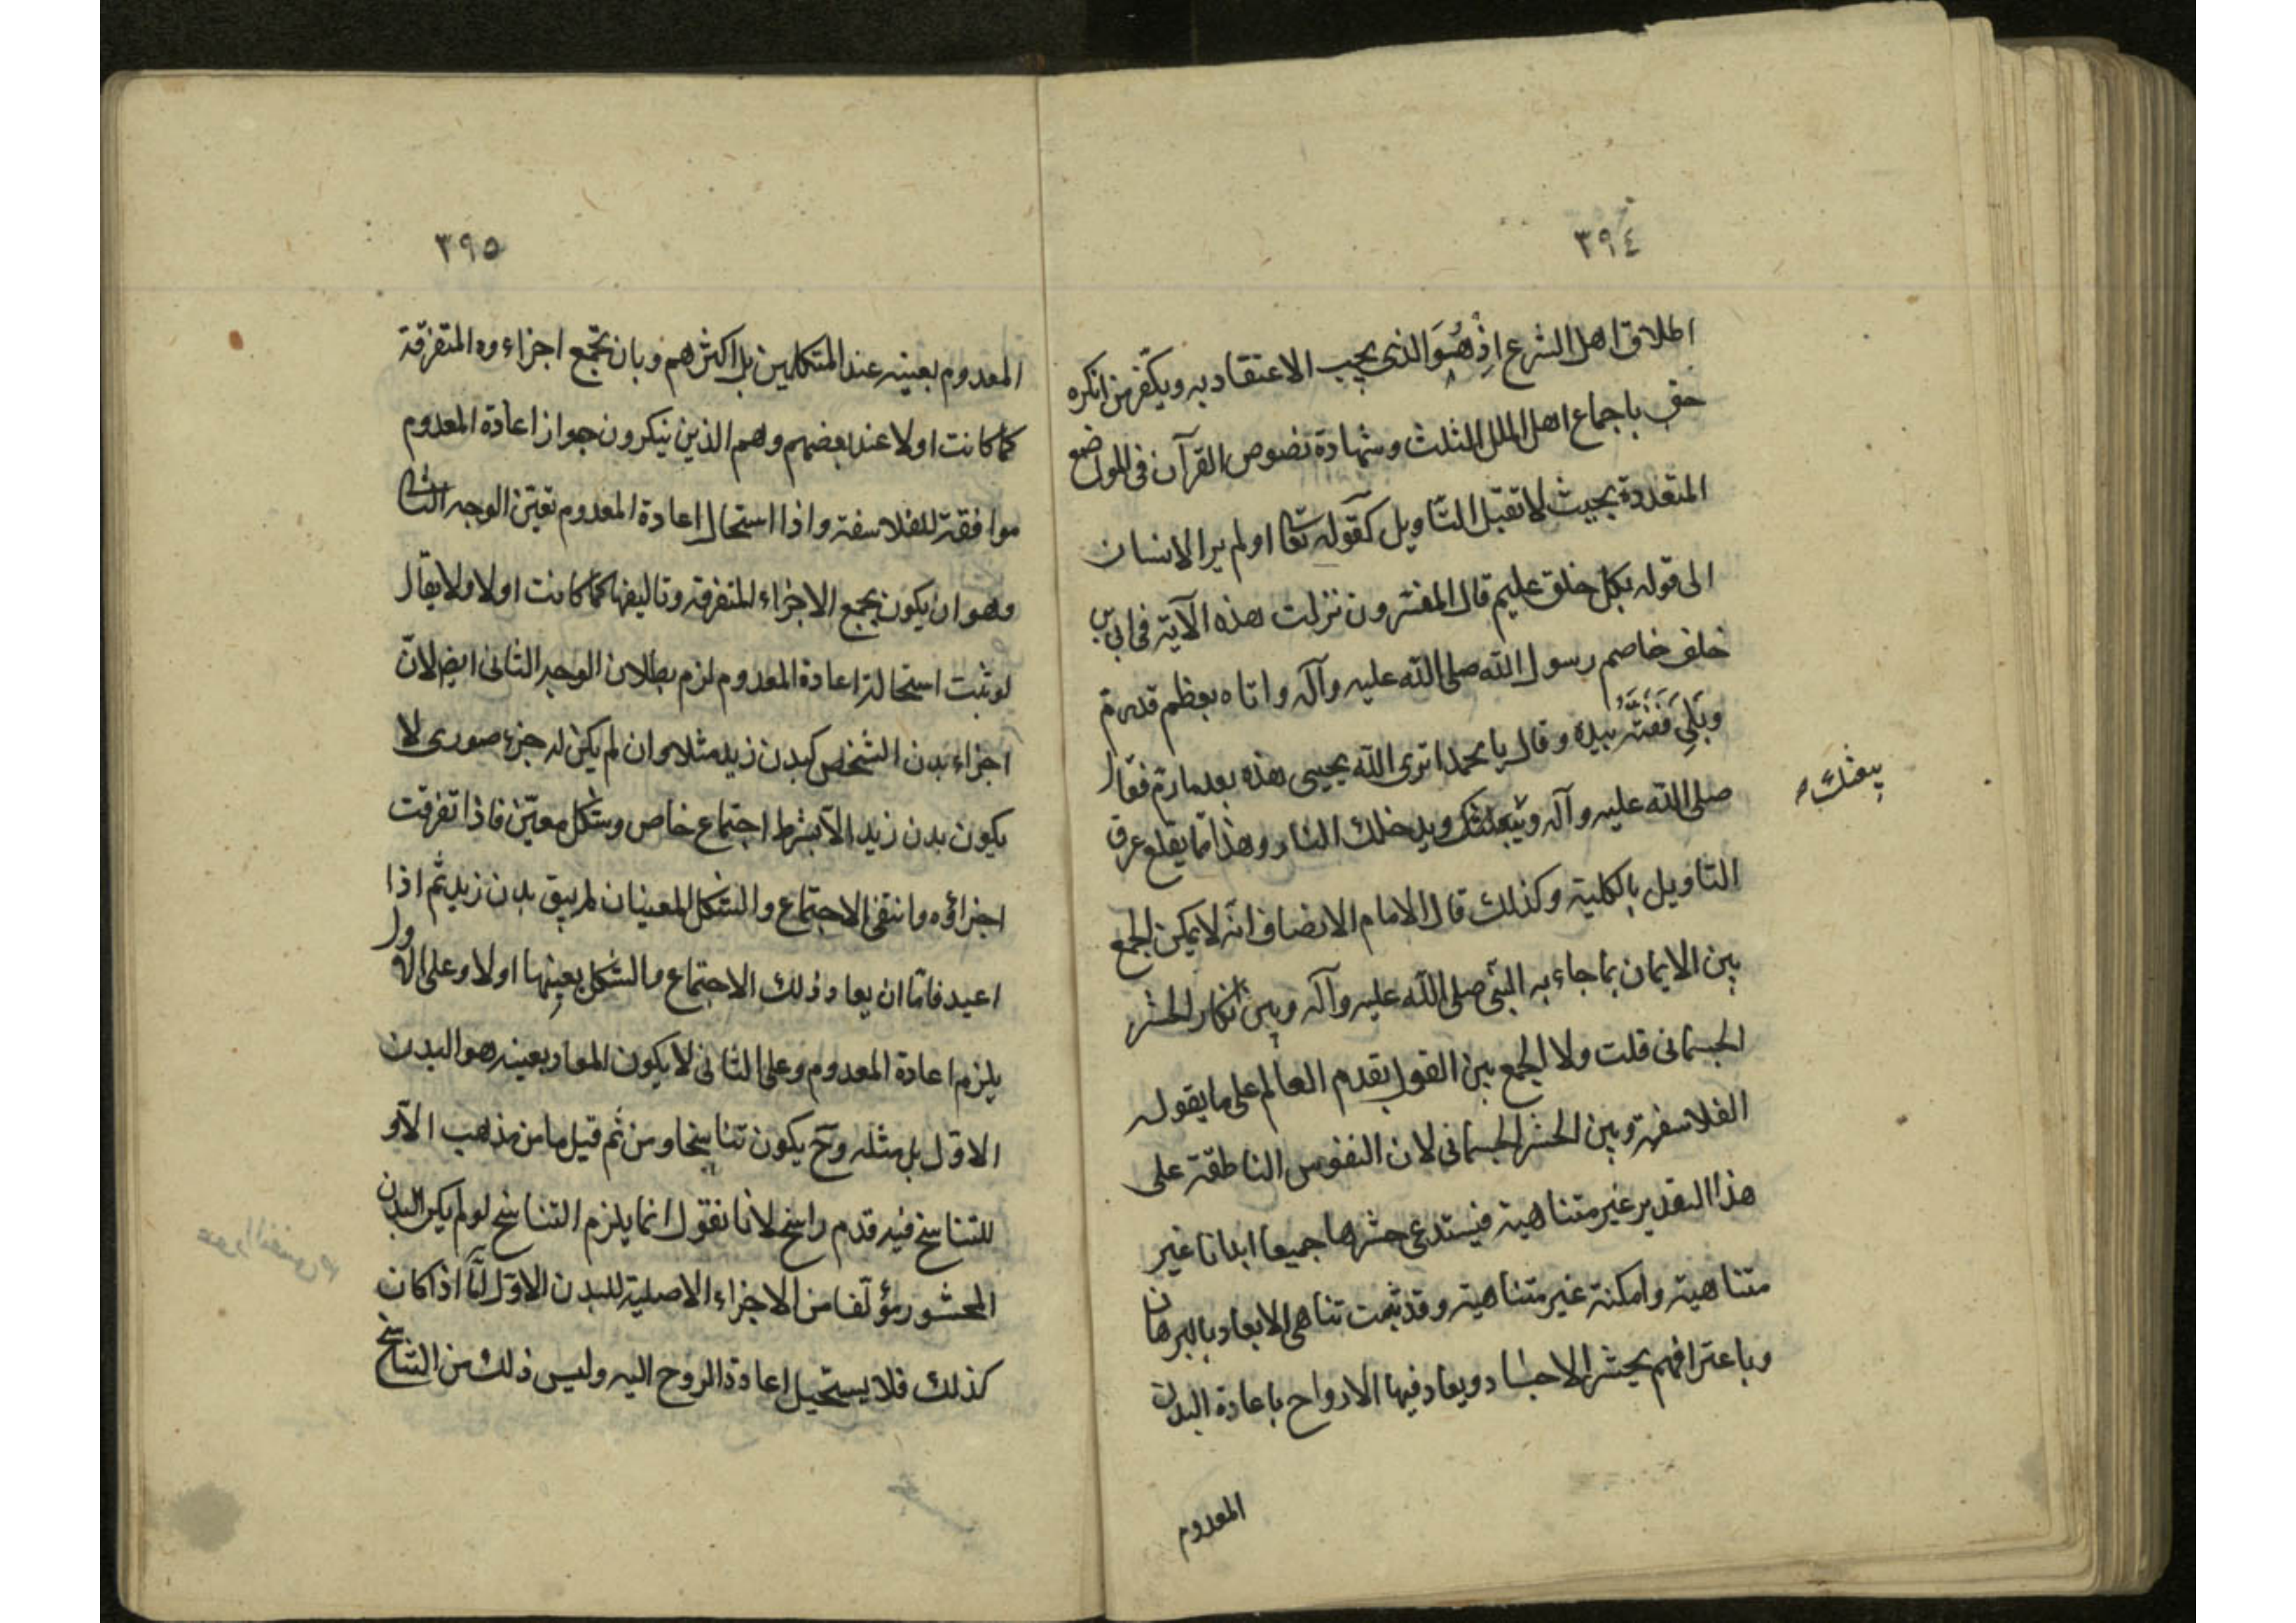 ٣٩٤
اطلاق اهل الشرع اذ هُوَ الذى يجب الاعتقاد به ويكفر من انكره
حق باجماع اهل الملل الثلث وشهادة نصوص القرآن فى المواضع
المتعددة بحيث لا تقبل التاويل كقوله تعا اولم ير الانسان
الى قوله بكل خلق عليم قال المفسرون نزلت هذه الآية فى ابى بن
خلف خاصم رسول الله صلى الله عليه وآله واتاه بعظم قد رم
وبلى ففته بيده وقال يا محمد اترى الله يحيى هذه بعد ما رم فقال
صلى الله عليه وآله ويبعثك ويدخلك النار وهذا مما يقلع عرق
يبعثك
التاويل بالكلية وكذلك قال الامام الانصاف انه لا يمكن الجمع
بين الايمان بما جاء به النبى صلى الله عليه وآله وبين انكار الحشر
الجسمانى قلت ولا الجمع بين القول بقدم العالم على ما يقوله
الفلاسفة وبين الحشر الجسمانى لان النفوس الناطقة على
هذا التقدير غير متناهية فيستدعى حشرها جميعا ابدانا غير
متناهية وامكنة غير متناهية وقد ثبت تناهى الابعاد بالبرهان
وباعترافهم يحشر الاجساد ويعاد فيها الارواح باعادة البدن
المعدوم
٣٩٥
المعدوم بعينه عند المتكلمين بل اكثرهم وبان تجمع اجزاءوه المتفرقة
كما كانت اولا عند بعضهم وهم الذين ينكرون جواز اعادة المعدوم
موافقة للفلاسفة واذا استحال اعادة المعدوم تعين الوجه الثانى
وهو ان يكون بجمع الاجزاء المتفرقة وتاليفها كما كانت اولا ولا يقال
لو ثبت استحالة اعادة المعدوم لزم بطلان الوجه الثانى ايض لان
اجزاء بدن الشخص كبدن زيد مثلا وان لم يكن له جزء صورى لا
يكون بدن زيد الا بشرط اجتماع خاص وشكل معين فاذا تفرقت
اجزاؤه وانتفى الاجتماع والشكل المعينان لم يبق بدن زيد ثم اذا
اعيد فاما ان يعاد ذلك الاجتماع والشكل بعينها اولا وعلى الاول
يلزم اعادة المعدوم وعلى الثانى لا يكون المعاد بعينه هو البدن
الاول بل مثله وح يكون تناسخا ومن ثم قيل ما من مذهب الاو
للتناسخ فيه قدم راسخ لانا نقول انما يلزم التناسخ لو لم يكن البدن
المحشور مؤلفا من الاجزاء الاصلية للبدن الاول اما اذا كان
كذلك فلا يستحيل اعادة الروح اليه وليس ذلك من التناسخ